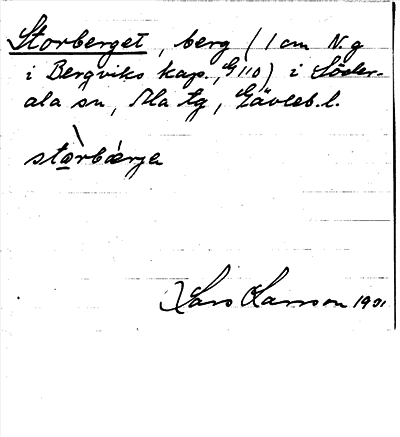 Storberget, berg (1 cm N. g
i Bergviks kap., G 110) i Söder-
ala sn, Ala tg, Gävleb. l.
stòrbǽrje
Lars Larsson 1901